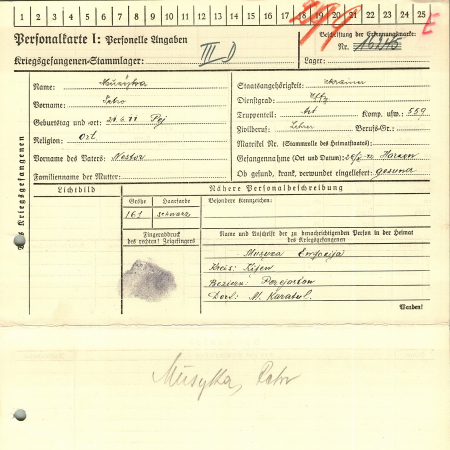 1 2 3 4 5 6 7 8 9 10 11 12 13 14 15 16 17 18 19 20 21 22 23 24 25
E
Personalkarte I: Personelle Angaben
Beschriftung der Erkennungsmarke
Nr.
Kriegsgefangenen-Stammlager: III D
Lager:
Des Kriegsgefangenen
Name: Musyka
Vorname: Petro
Geburtstag und -ort:
Religion: Ort
Vorname des Vaters: Nestor
Familienname der Mutter:
Staatsangehörigkeit: Ukrainer
Dienstgrad: Uffz
Truppenteil: Art Komp. usw.: 559
Zivilberuf: Lehrer Berufs-Gr.:
Matrikel Nr. (Stammrolle des Heimatstaates):
Gefangennahme (Ort und Datum):
Ob gesund, krank, verwundet eingeliefert: gesund
Lichtbild
Nähere Personalbeschreibung
Größe Haarfarbe Besondere Kennzeichen:
161 schwarz
Fingerabdruck
des rechten! Zeigefingers
Name und Anschrift der zu benachrichtigenden Person in der Heimat
des Kriegsgefangenen
Kreis: Kijew
Dorf: M. Karatul.
Wenden!
Musyka, Petr